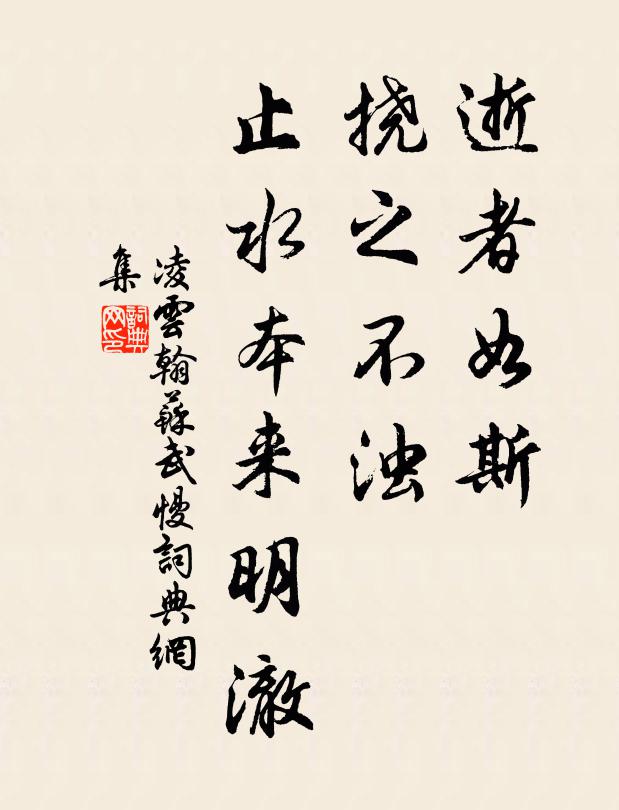 逝者如斯
挠之不浊
止水本来明澈
凌雲翰蘇武慢詞典網
集
詞典
网印